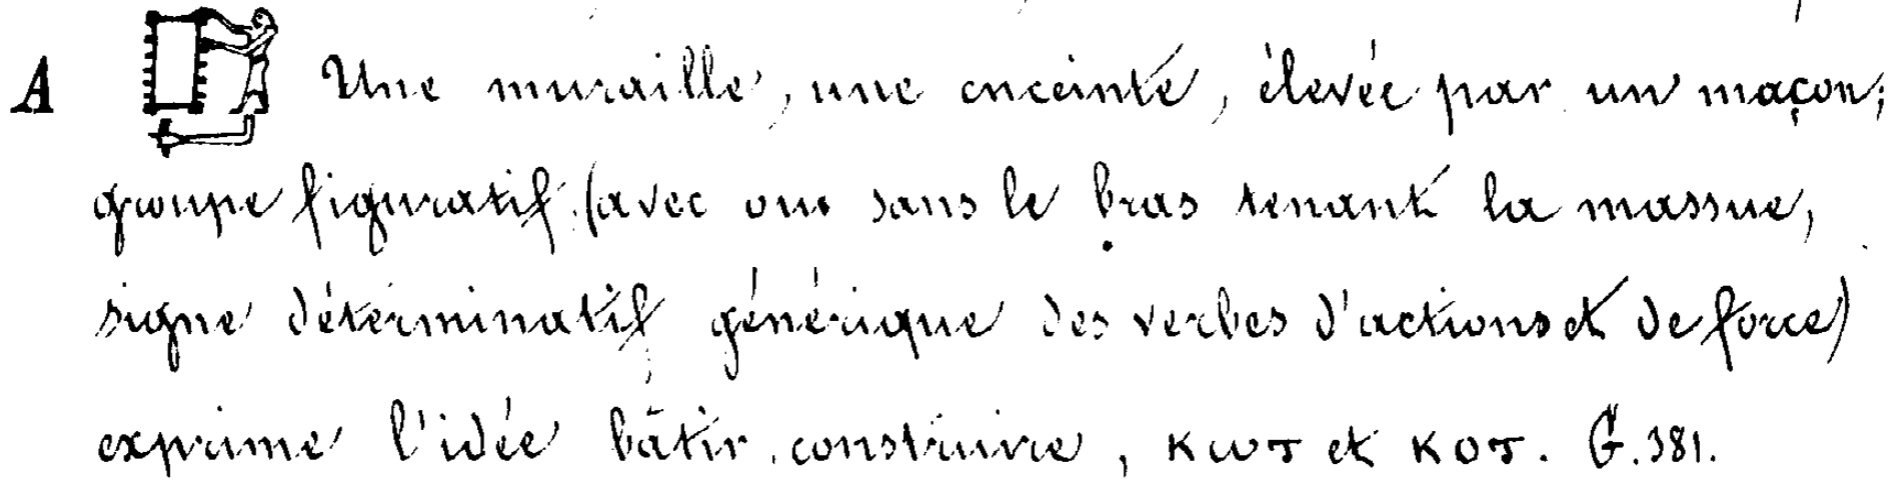 A Une muraille, une enceinte, élevée par un maçon;
groupe figuratif (avec ou sans le bras tenant la massue,
signe déterminatif générique des verbes d'actions et de force)
exprime l'idée bâtir, construire, ⲕⲱⲧ et ⲕⲟⲧ. G. 381.